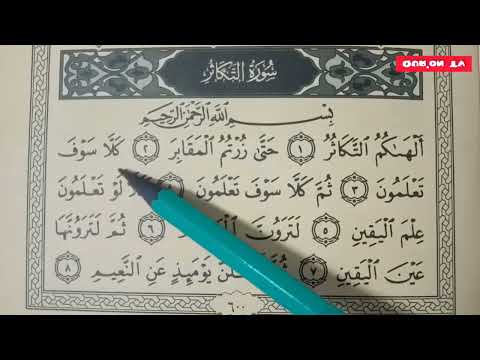 سُورَةُ التَّكَاثُرِ
بِسْمِ اللَّهِ الرَّحْمَٰنِ الرَّحِيمِ
أَلْهَىٰكُمُ ٱلتَّكَاثُرُ ١ حَتَّىٰ زُرْتُمُ ٱلْمَقَابِرَ ٢ كَلَّا سَوْفَ
تَعْلَمُونَ ٣ ثُمَّ كَلَّا سَوْفَ تَعْلَمُونَ لَوْ تَعْلَمُونَ
عِلْمَ ٱلْيَقِينِ ٥ لَتَرَوُنَّ ٦ ثُمَّ لَتَرَوُنَّهَا
عَيْنَ ٱلْيَقِينِ ٧ يَوْمَئِذٍ عَنِ ٱلنَّعِيمِ ٨
٦٠٠